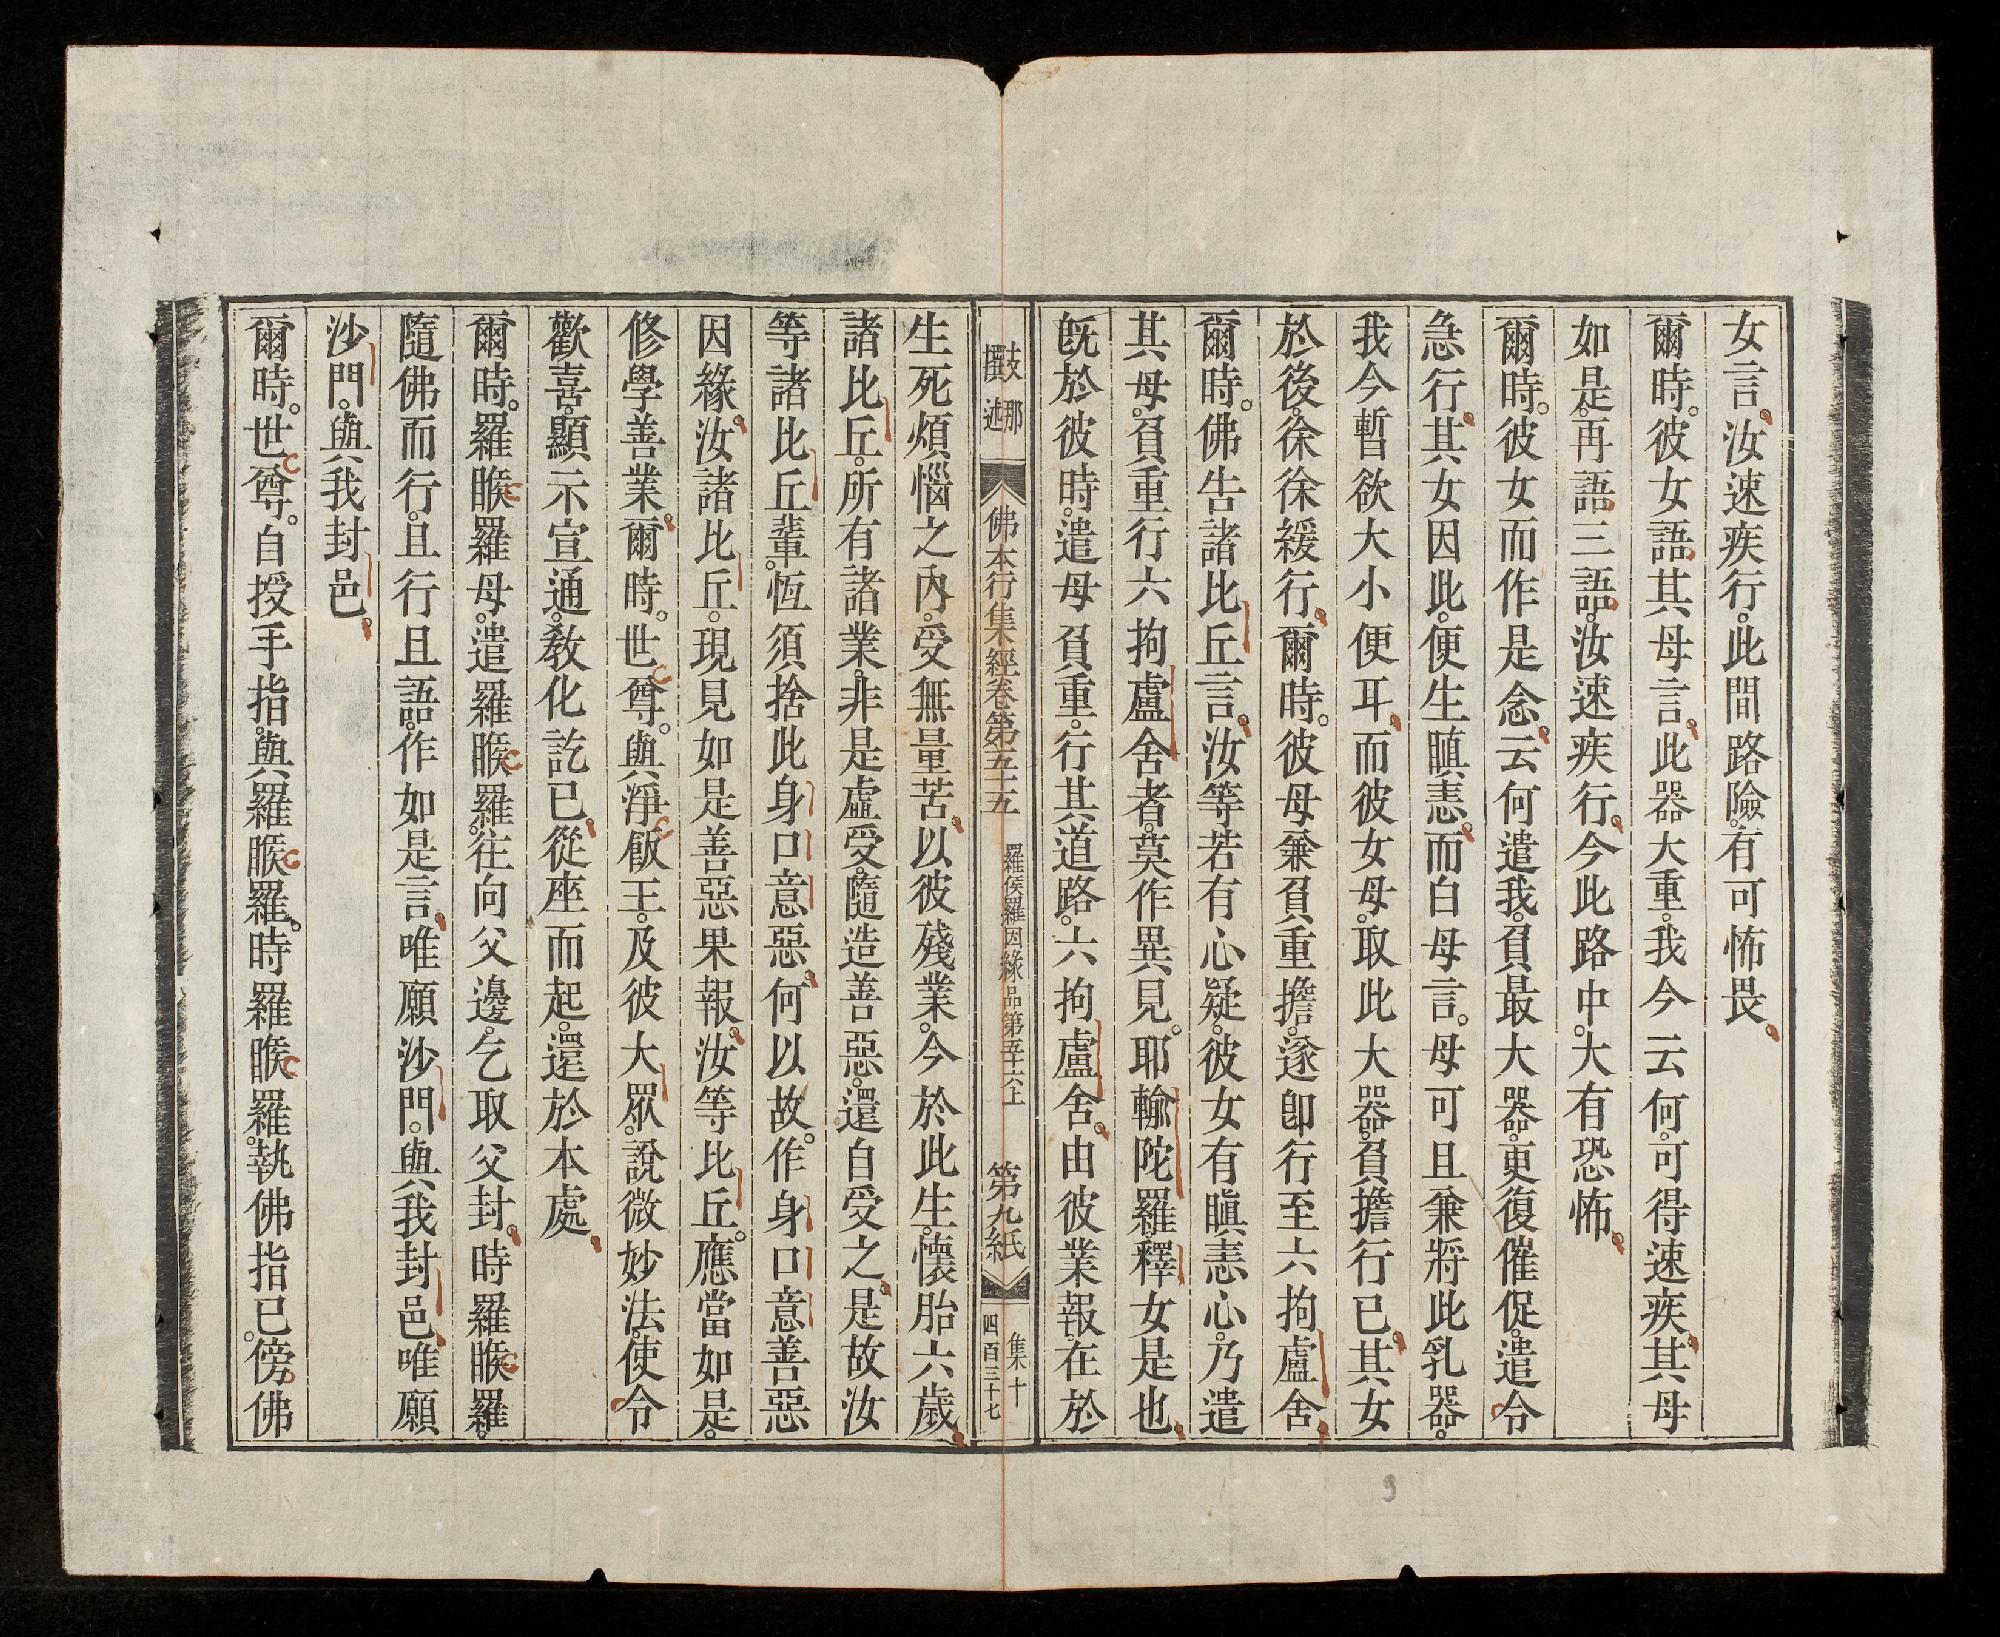 女言。汝速疾行。此間路險。有可怖畏。
爾時。彼女語其母言。此器大重。我今云何。可得速疾。其母
如是。再語三語。汝速疾行。今此路中。大有恐怖。
爾時。彼女而作是念。云何遣我。負最大器。更復催促。遣令
急行。其女因此。便生瞋恚。而白母言。母可且兼將此乳器。
我今暫欲大小便耳。而彼女母。取此大器。負擔行已。其女
於後。徐徐緩行。爾時。彼母兼負重擔。遂即行至六拘盧舍。
爾時。佛告諸比丘言。汝等若有心疑。彼女有瞋恚心。乃遣
其母。負重行六拘盧舍者。莫作異見。耶輸陀羅。釋女是也。
既於彼時。遣母負重。行其道路。六拘盧舍。由彼業報。在於
佛本行集經卷第五十五 羅侯羅因緣品第五十六上 第九紙 集十 四百三十七
生死煩惱之內。受無量苦。以彼殘業。今於此生。懷胎六歲。
諸比丘。所有諸業。非是虛受。隨造善惡。還自受之。是故汝
等諸比丘輩。恆須捨此身口意惡。何以故。作身口意善惡
因緣。汝諸比丘。現見如是善惡果報。汝等比丘。應當如是。
修學善業。爾時。世尊。與淨飯王。及彼大眾。說微妙法。使令
歡喜。顯示宣通。教化訖已。從座而起。還於本處。
爾時。羅睺羅母。遣羅睺羅。往向父邊。乞取父封。時羅睺羅。
隨佛而行。且行且語。作如是言。唯願沙門。與我封邑。唯願
沙門。與我封邑。
爾時。世尊。自授手指。與羅睺羅。時羅睺羅。執佛指已。傍佛